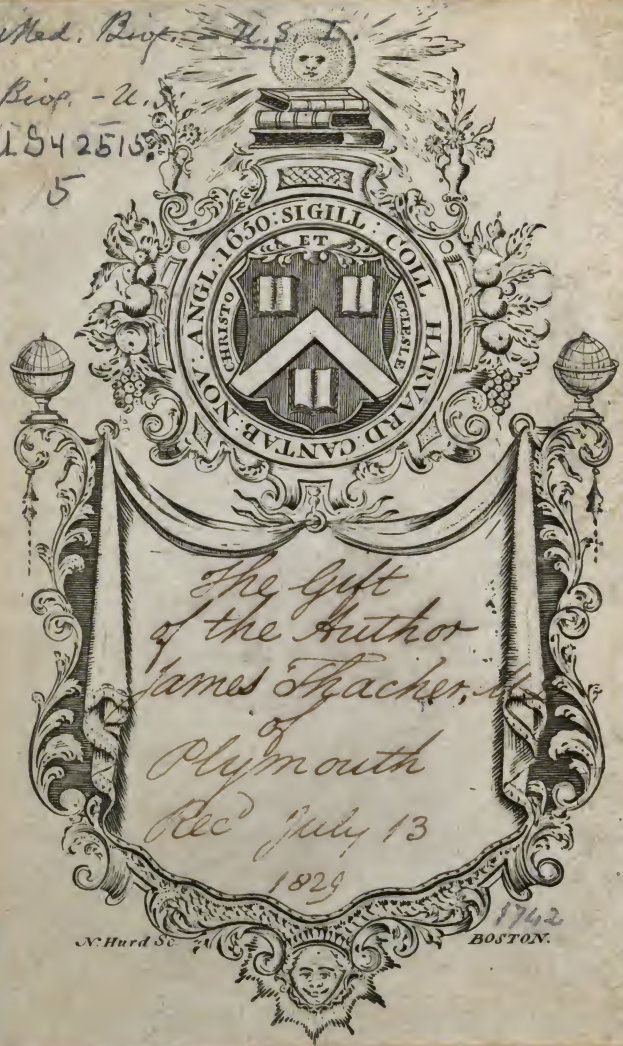 Med. Biog. - U.S. I.
Biog. - U.S.
US42515
5
SIGILL : COLL HARVARD : CANTAB : NOV : ANGL : 1650 :
ET
CHRISTO
ECCLESLE
The Gift
of the Author
James Thacher, M
of
Plymouth
Recd July 13
1829
1742
N. Hurd Sc
BOSTON.